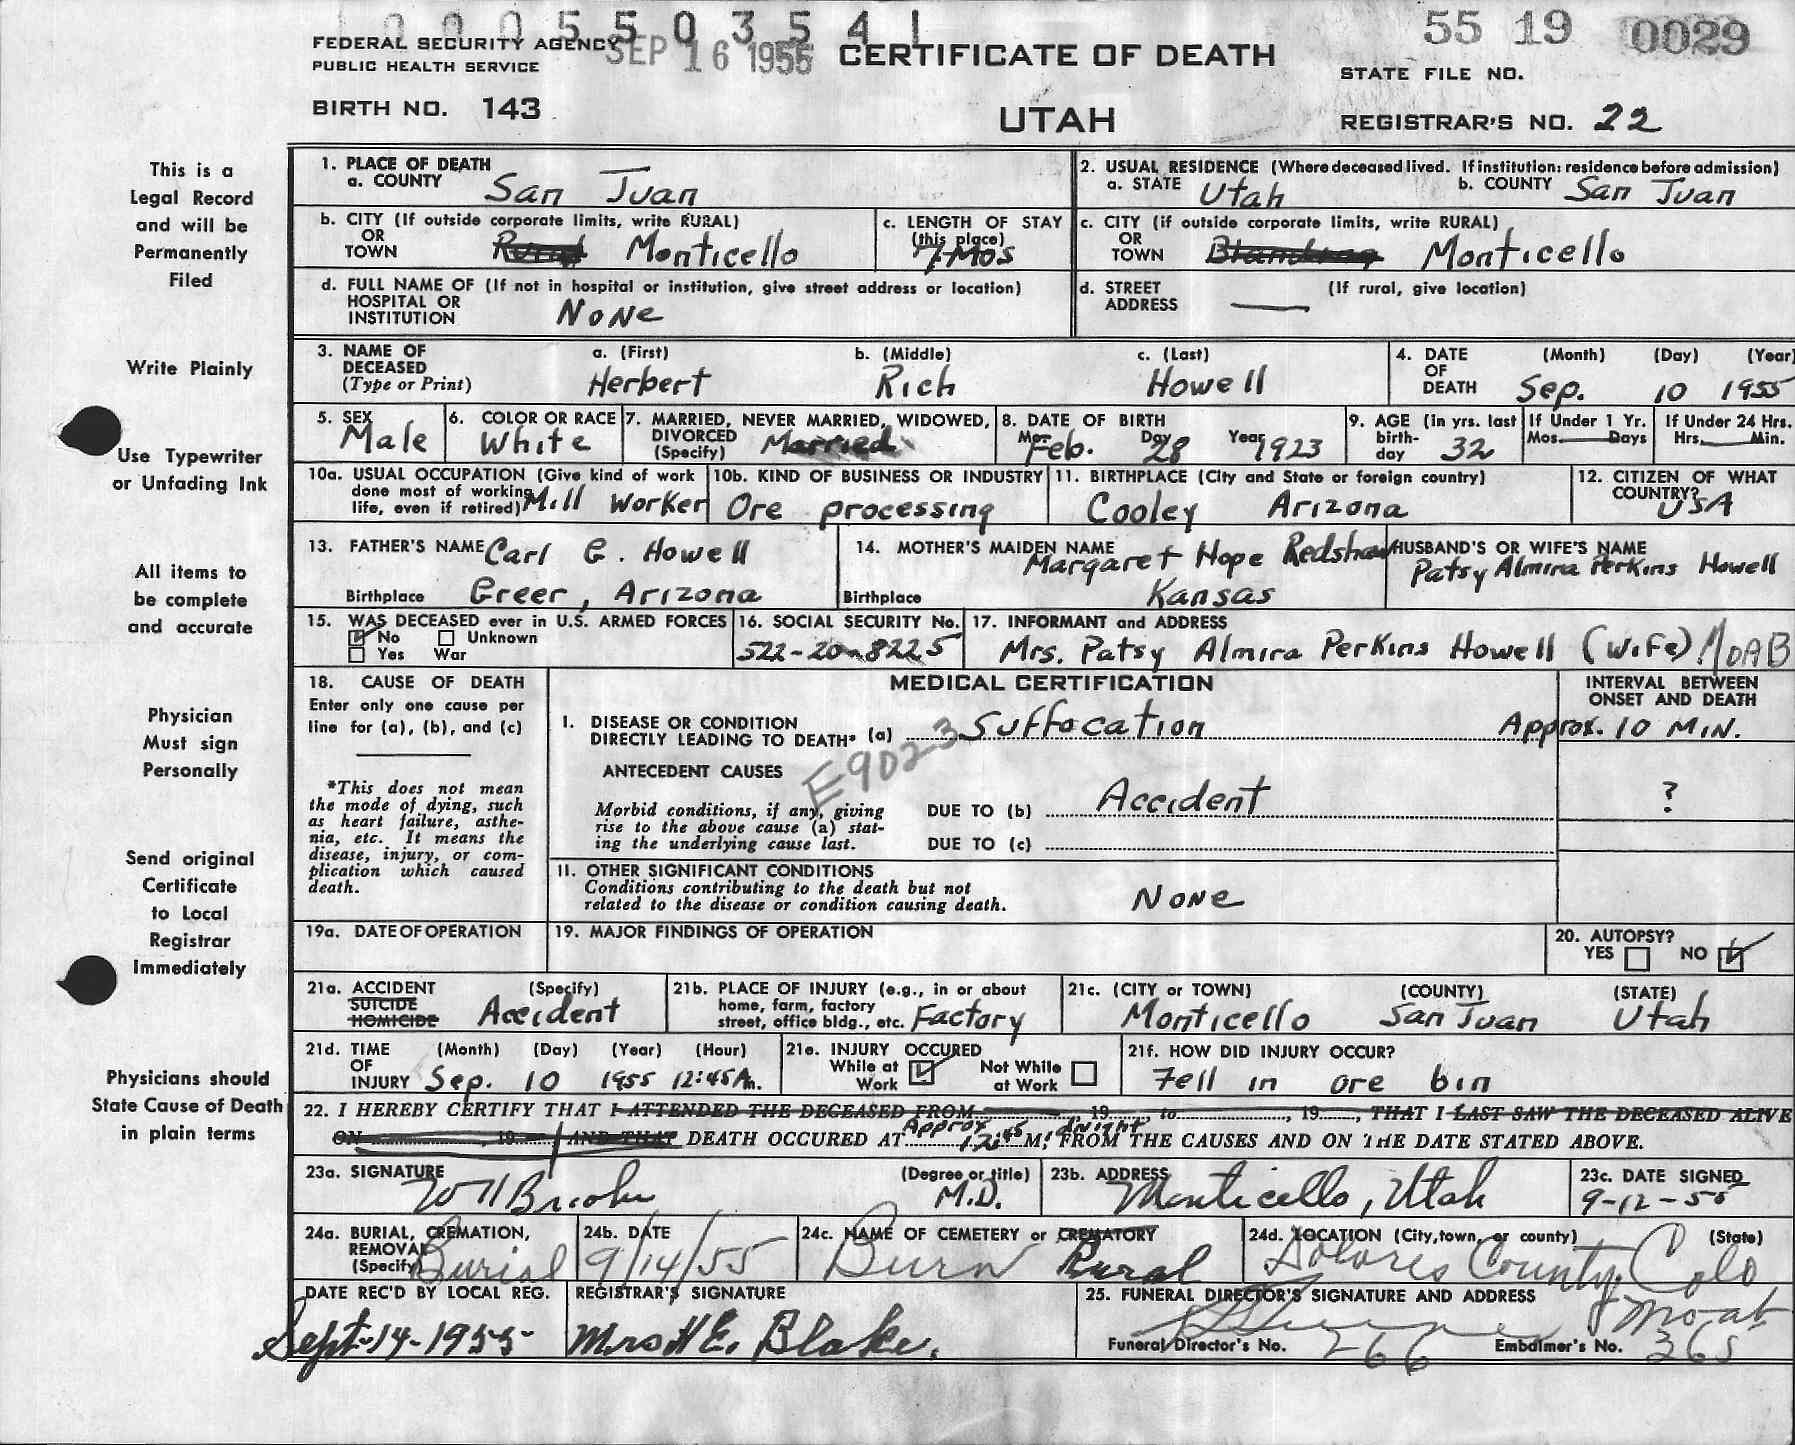 1 0 0 0 5 5 0 3 5 4 1
55 19 0029
FEDERAL SECURITY AGENCY
PUBLIC HEALTH SERVICE
SEP 16 1955
CERTIFICATE OF DEATH
STATE FILE NO.
BIRTH NO. 143
UTAH
REGISTRAR'S NO. 22
This is a
Legal Record
and will be
Permanently
Filed
Write Plainly
Use Typewriter
or Unfading Ink
All items to
be complete
and accurate
Physician
Must sign
Personally
Send original
Certificate
to Local
Registrar
Immediately
Physicians should
State Cause of Death
in plain terms
1. PLACE OF DEATH
a. COUNTY San Juan
2. USUAL RESIDENCE (Where deceased lived. If institution: residence before admission)
a. STATE Utah b. COUNTY San Juan
b. CITY (If outside corporate limits, write RURAL)
OR
TOWN Rural Monticello
c. LENGTH OF STAY
(this place)
7 Mos
c. CITY (if outside corporate limits, write RURAL)
OR
TOWN Monticello
d. FULL NAME OF (If not in hospital or institution, give street address or location)
HOSPITAL OR
INSTITUTION None
d. STREET (If rural, give location)
ADDRESS
3. NAME OF a. (First) b. (Middle) c. (Last)
DECEASED
(Type or Print) Herbert Rich Howell
4. DATE (Month) (Day) (Year)
OF
DEATH Sep. 10 1955
5. SEX
Male
6. COLOR OR RACE
White
7. MARRIED, NEVER MARRIED, WIDOWED,
DIVORCED
(Specify) Married
8. DATE OF BIRTH
Mo. Day Year
Feb. 28 1923
9. AGE (in yrs. last
birth-
day 32
If Under 1 Yr.
Mos. Days
If Under 24 Hrs.
Hrs. Min.
10a. USUAL OCCUPATION (Give kind of work
done most of working
life, even if retired) Mill Worker
10b. KIND OF BUSINESS OR INDUSTRY
Ore processing
11. BIRTHPLACE (City and State or foreign country)
Cooley Arizona
12. CITIZEN OF WHAT
COUNTRY?
USA
13. FATHER'S NAME Carl G. Howell
Birthplace Greer, Arizona
14. MOTHER'S MAIDEN NAME
Margaret Hope Redshaw
Birthplace Kansas
HUSBAND'S OR WIFE'S NAME
Patsy Almira Perkins Howell
15. WAS DECEASED ever in U.S. ARMED FORCES
No Unknown
Yes War
16. SOCIAL SECURITY No.
522-20-8225
17. INFORMANT and ADDRESS
Mrs. Patsy Almira Perkins Howell (Wife) MOAB
18. CAUSE OF DEATH
Enter only one cause per
line for (a), (b), and (c)
*This does not mean
the mode of dying, such
as heart failure, asthe-
nia, etc. It means the
disease, injury, or com-
plication which caused
death.
MEDICAL CERTIFICATION
INTERVAL BETWEEN
ONSET AND DEATH
I. DISEASE OR CONDITION
DIRECTLY LEADING TO DEATH* (a) Suffocation Approx. 10 MIN.
E902-3
ANTECEDENT CAUSES
Morbid conditions, if any, giving
rise to the above cause (a) stat-
ing the underlying cause last.
DUE TO (b) Accident ?
DUE TO (c)
II. OTHER SIGNIFICANT CONDITIONS
Conditions contributing to the death but not
related to the disease or condition causing death. None
19a. DATE OF OPERATION
19. MAJOR FINDINGS OF OPERATION
20. AUTOPSY?
YES NO
21a. ACCIDENT (Specify)
SUICIDE
HOMICIDE Accident
21b. PLACE OF INJURY (e.g., in or about
home, farm, factory
street, office bldg., etc. Factory
21c. (CITY or TOWN) (COUNTY) (STATE)
Monticello San Juan Utah
21d. TIME (Month) (Day) (Year) (Hour)
OF
INJURY Sep. 10 1955 12:45 Am.
21e. INJURY OCCURED
While at Work Not While at Work
21f. HOW DID INJURY OCCUR?
Fell in ore bin
22. I HEREBY CERTIFY THAT I ATTENDED THE DECEASED FROM , 19 , to , 19 THAT I LAST SAW THE DECEASED ALIVE
ON , 19 AND THAT DEATH OCCURED AT Approx 12:45 M, FROM THE CAUSES AND ON THE DATE STATED ABOVE.
23a. SIGNATURE (Degree or title)
M.D.
23b. ADDRESS
Monticello, Utah
23c. DATE SIGNED
9-12-55
24a. BURIAL, CREMATION,
REMOVAL
(Specify) Burial
24b. DATE
9/14/55
24c. NAME OF CEMETERY or CREMATORY
Burn Rural
24d. LOCATION (City, town, or county) (State)
Dolores County, Colo
DATE REC'D BY LOCAL REG.
Sept-14-1955
REGISTRAR'S SIGNATURE
Mrs H E. Blake.
25. FUNERAL DIRECTOR'S SIGNATURE AND ADDRESS
Moab
Funeral Director's No. 266 Embalmer's No. 365